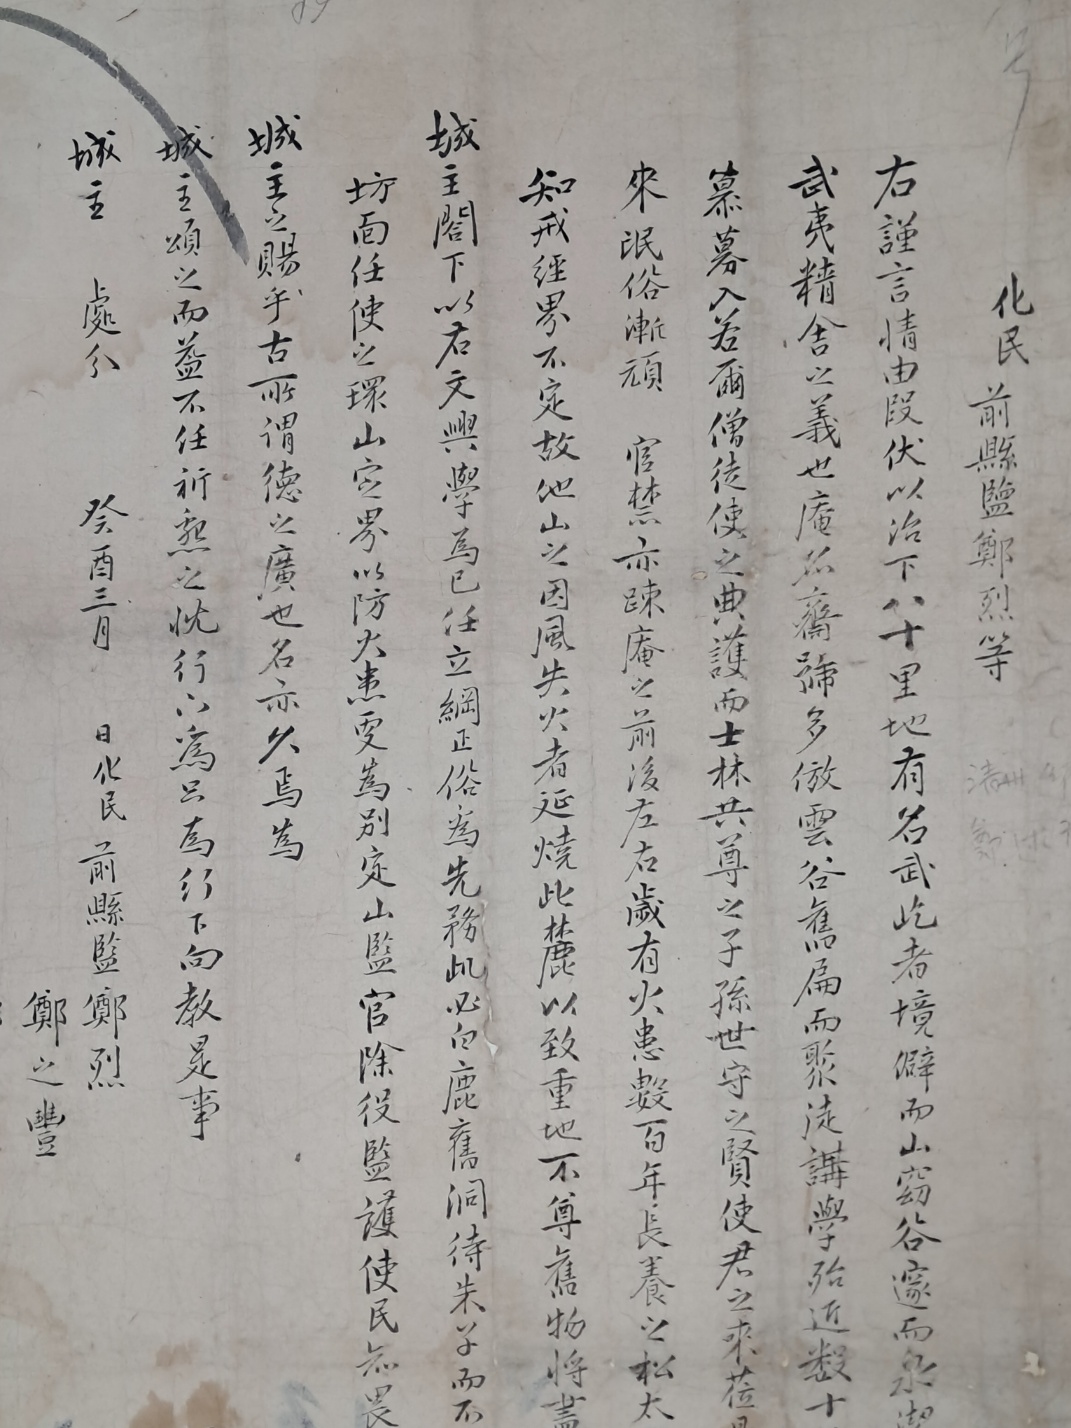 化民 前縣監鄭烈等
右謹言情由段伏以治下八十里地有名武屹者境僻而山窈谷邃而泉
武夷精舍之義也庵以齋號多倣雲谷舊扁而聚徒講學殆近數十
慕募入若爾僧徒使之典護而士林共尊之子孫世守之賢使君之來莅
來氓俗漸頑 官禁亦踈庵之前後左右歲有火患數百年長養之松太
知戒經界不定故他山之因風失火者延燒此麓以致重地不尊舊物將盡
城主閤下以右文興學爲已任立綱正俗爲先務此必白鹿舊洞待朱子而不
坊面任使之環山定界以防火患更爲別定山監官除役監護使民知畏
城主之賜乎古所謂德之廣也名亦久焉爲
城主頌之而益不任祈懇之忱行下爲只爲行下向敎是事
城主 處分 癸酉三月 日化民 前縣監鄭烈
鄭之豐